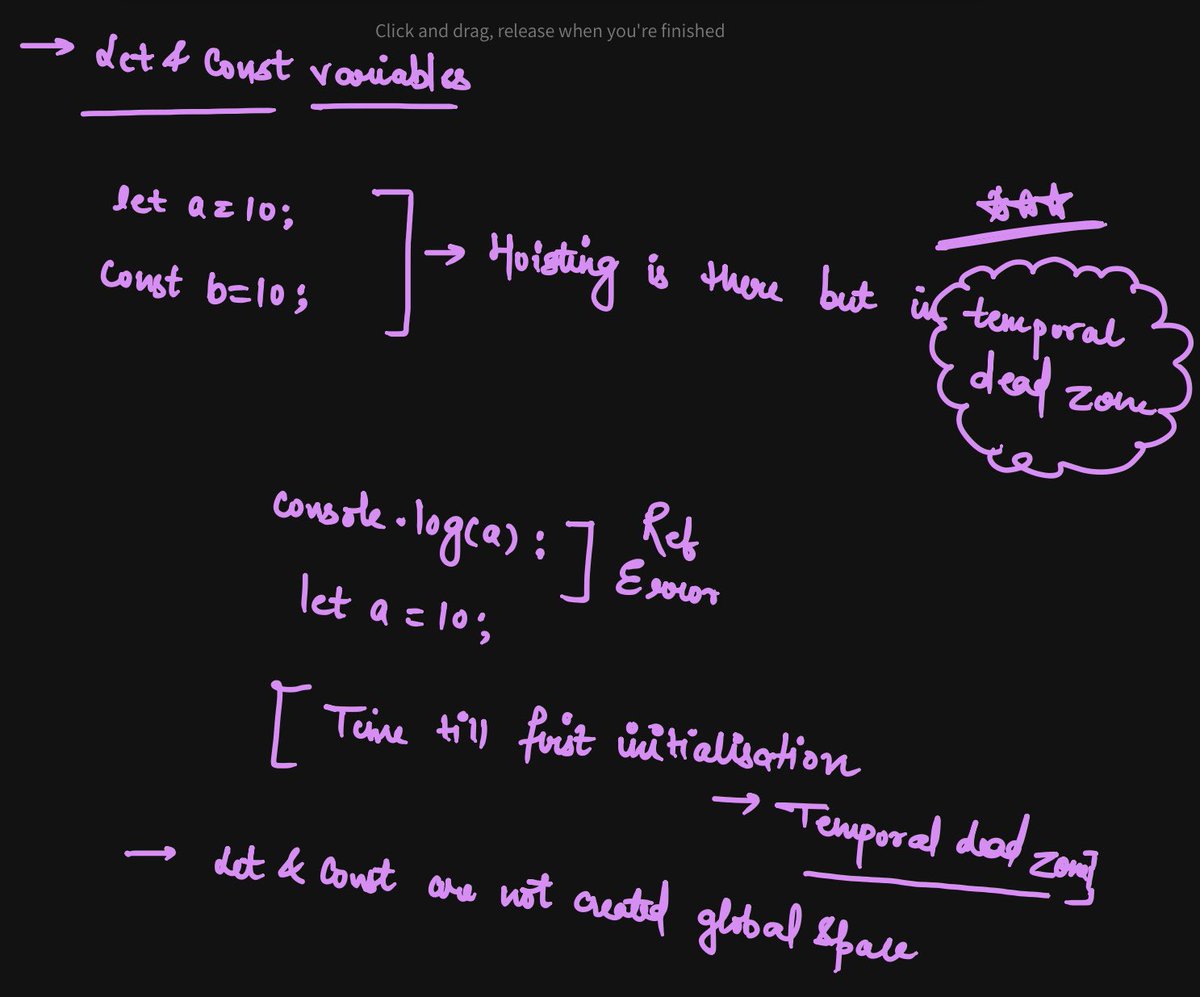 Click and drag, release when you're finished
→ Let & Const variables
let a = 10;
Const b = 10;
→ Hoisting is there but in temporal
dead zone
console.log(a);
Ref
Error
let a = 10;
[ Time till first initialisation
→ Temporal dead zone]
→ Let & Const are not created global space